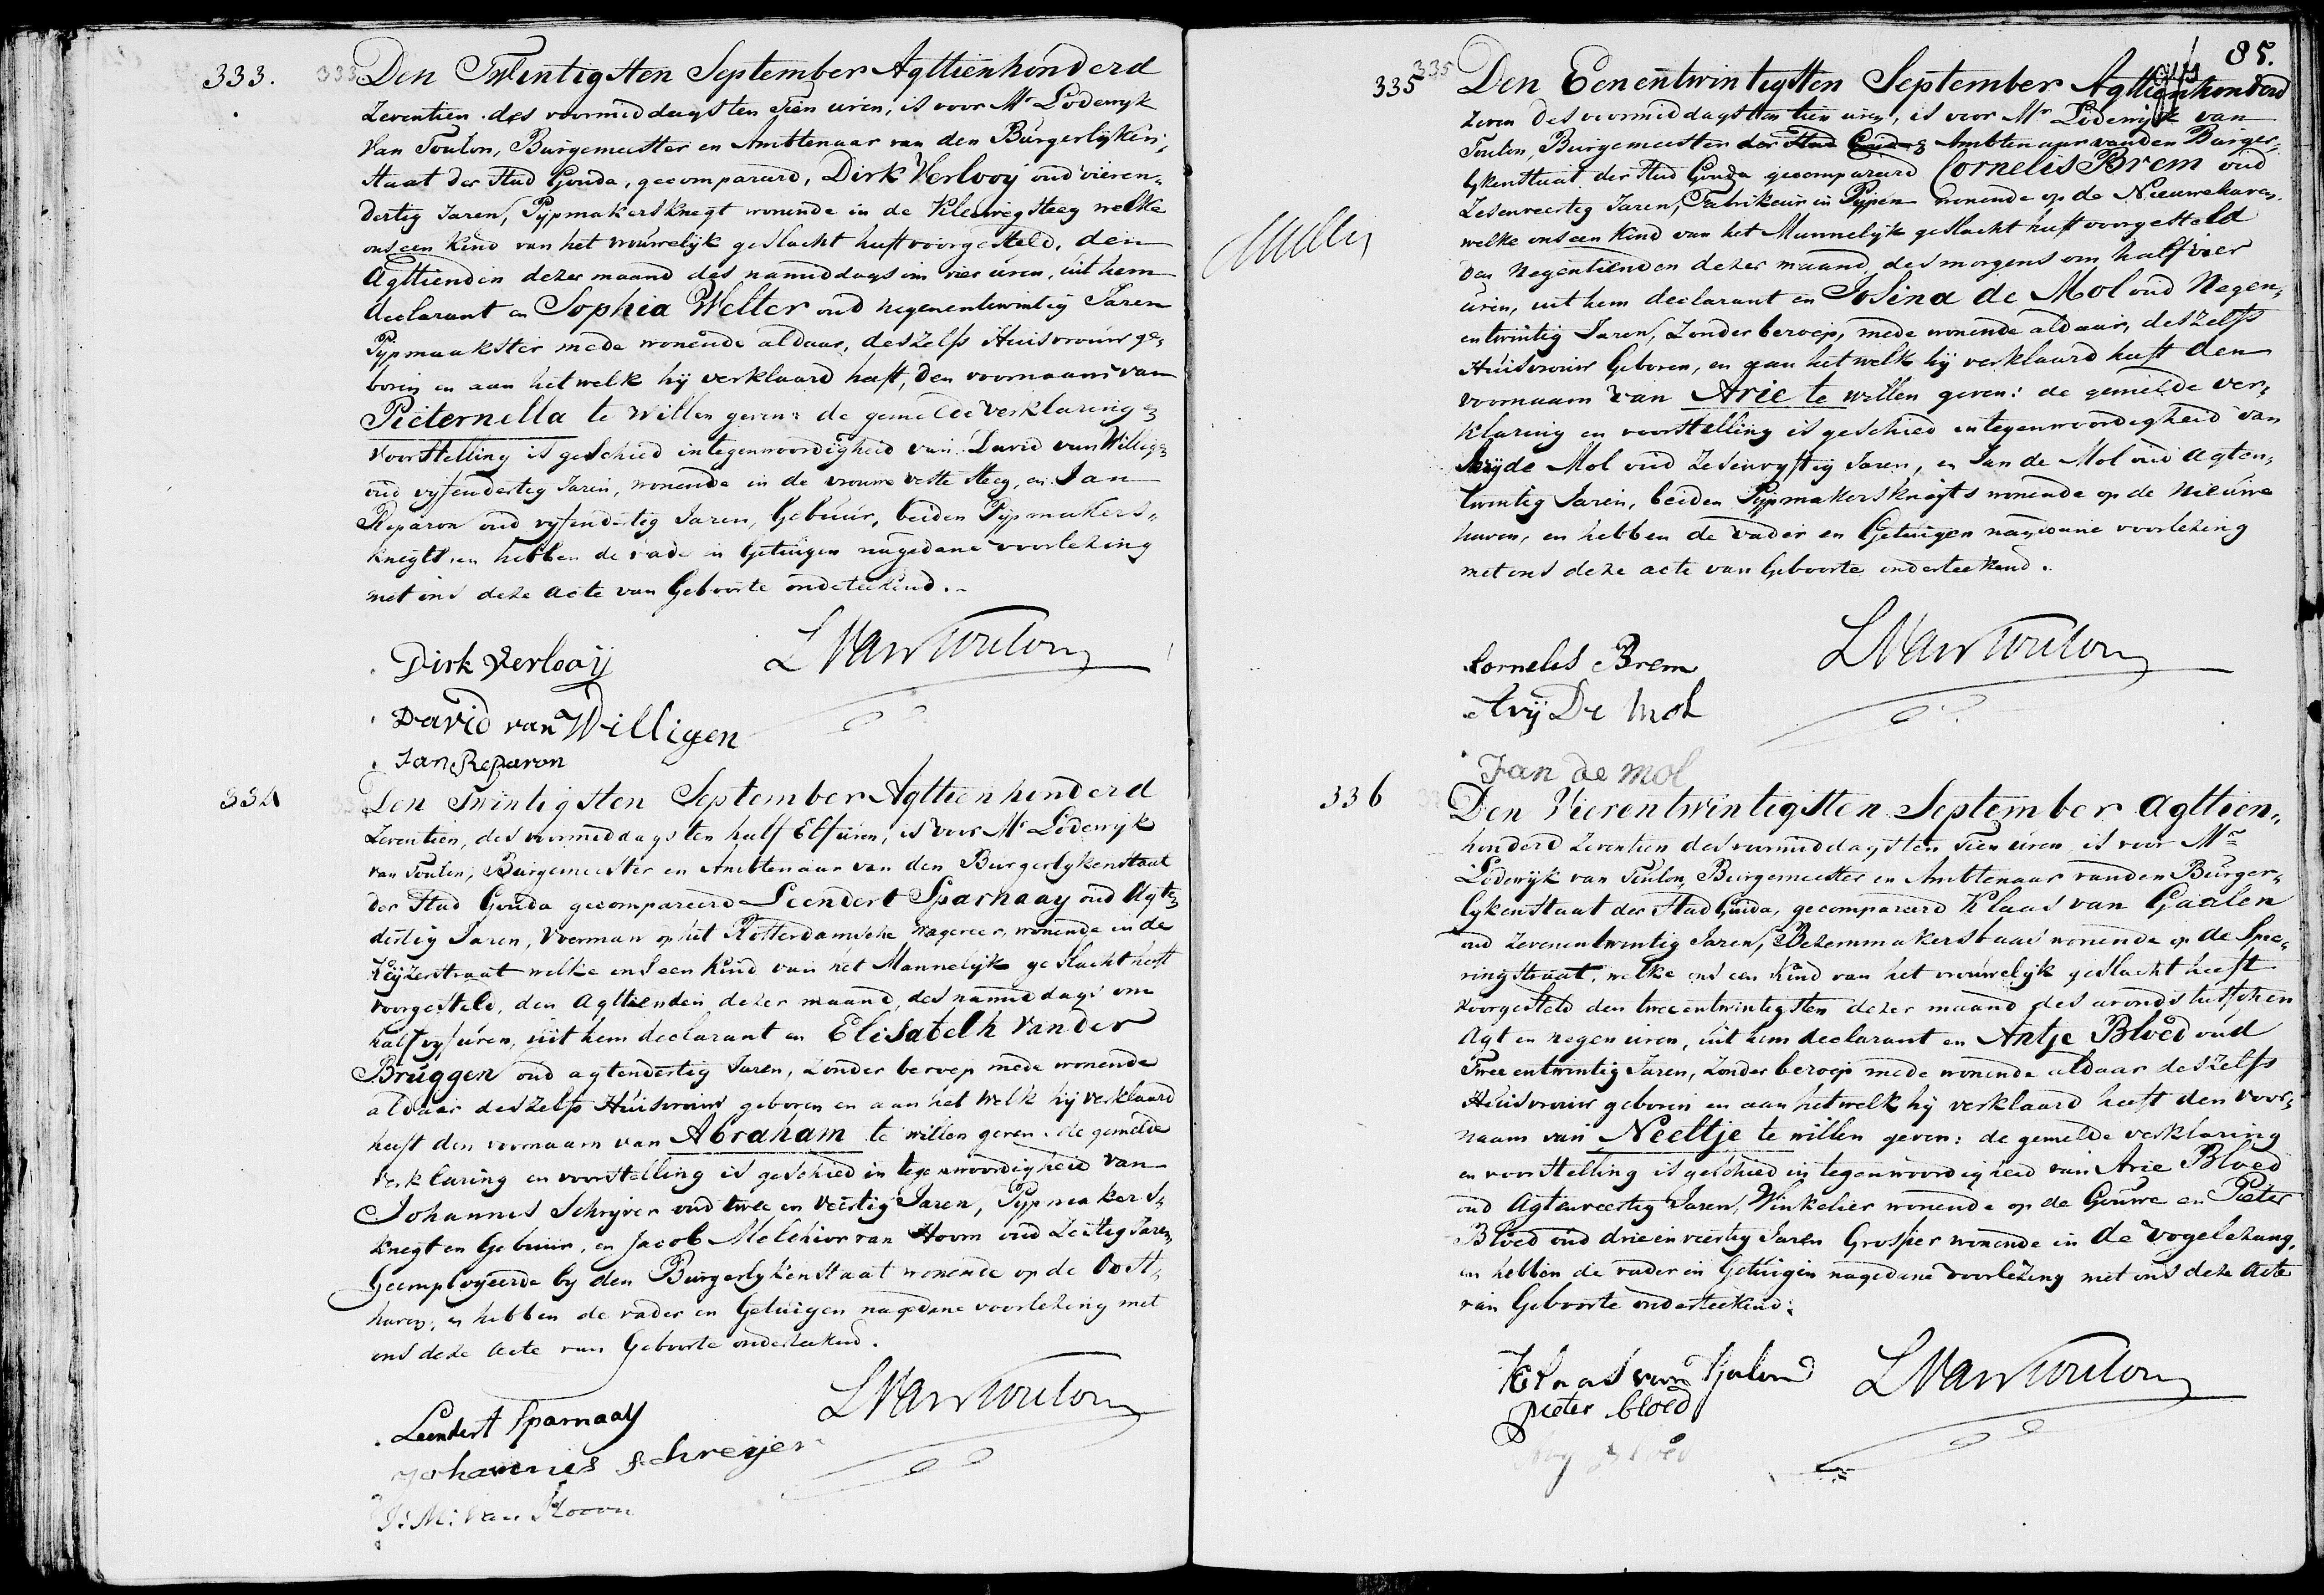 333. 333 Den Twintigsten September Agttienhonderd
Zeventien des voormiddags ten tien uren, is voor Mr Lodewyk
Van Toulon, Burgemeester en Ambtenaar van den Burgerlyken
Staat der Stad Gouda, gecompareerd, Dirk Verlooy oud vieren„
dertig Jaren, Pypmakersknegt wonende in de Kleiwegsteeg welke
ons een Kind van het vrouwelyk geslacht heeft voorgesteld, den
Agttienden dezer maand des namiddags om vier uren, uit hem
declarant en Sophia Welter oud negenentwintig Jaren
Pypmaakster mede wonende aldaar, deszelfs Huisvrouw ge„
boren en aan het welk hij verklaard heeft, den voornaam van
Pieternella te willen geven: de gemelde verklaring en
voorstelling is geschied in tegenwoordigheid van David van Willigen
oud vyfendertig Jaren, wonende in de vrouwe veste steeg, en Jan
Reparon oud vyfendertig Jaren, Gebuur, beiden Pypmakers„
knegts, en hebben de vader en Getuigen nagedane voorlezing
met ons deze acte van Geboorte ondeteekend.
Dirk Verlooij LVanToulon
David van Willigen
Jan Reparon
334 Den Twintigsten September Agttienhonderd
Zeventien, des voormiddags ten half Elf uren, is voor Mr Lodewyk
van Toulon, Burgemeester en Ambtenaar van den Burgerlykenstaat
der Stad Gouda gecompareerd Leendert Sparnaay oud Agt en
dertig Jaren, Voerman op het Rotterdamsche wagenveer, wonende in de
Keyzerstraat welke ons een kind van het Mannelyk geslacht heeft
voorgesteld, den Agttienden dezer maand, des namiddags om
half vyf uren, uit hem declarant en Elisabeth van der
Bruggen oud agtendertig Jaren, Zonder beroep mede wonende
aldaar deszelfs Huisvrouw geboren en aan het welk hij verklaard
heeft den voornaam van Abraham te willen geven: de gemelde
verklaring en voorstelling is geschied in tegenwoordigheid van
Johannes Schryver oud twee en veertig Jaren, Pypmakers„
knegt en Gebuur, en Jacob Melchior van Hoorn oud Zestig Jaren,
Geemployeerde by den Burgerlykenstaat wonende op de Oost„
haven, en hebben de vader en Getuigen nagedane voorlezing met
ons deze acte van Geboorte onderteekend.
Leendert Sparnaay LVanToulon
Johannes schreijer
J: M: van Hoorn
85.
335 335 Den Eenentwintigsten September Agttienhonderd
Zeven des voormiddags ten tien uren, is voor Mr Lodewijk van
Toulon, Burgemeester der Stad en Ambtenaar van den Burger„
lykenstaat der Stad Gouda gecompareerd Cornelis Brem oud
Zesenveertig Jaren, Fabrikeur in Pypen wonende op de Nieuwehaven
welke ons een Kind van het Mannelyk geslacht heeft voorgesteld
den Negentienden dezer maand, des morgens om half vier
uren, uit hem declarant en Josina de Mol oud Negen„
entwintig Jaren, Zonder beroep, mede wonende aldaar, deszelfs
Huisvrouw Geboren, en aan het welk hij verklaard heeft den
voornaam van Arie te willen geven: de gemelde ver„
klaring en voorstelling is geschied in tegenwoordigheid van
Arij de Mol oud Zesenvyftig Jaren, en Jan de Mol oud agten„
twintig Jaren, beiden Pypmakersknegts wonende op de Nieuwe
haven, en hebben de vader en Getuigen nagedane voorlezing
met ons deze acte van Geboorte onderteekend.
Cornelis Brem LVanToulon
Arij De Mol
Jan de mol
336 Den Vierentwintigsten September Agttien„
honderd Zeventien des voormiddags ten tien uren is voor Mr
Lodewijk van Toulon, Burgemeester en Ambtenaar van den Burger„
lykenstaat der Stad Gouda, gecompareerd Klaas van Gaalen
oud Zevenentwintig Jaren, Bezemmakersbaas wonende op de Spie„
ringstraat, welke ons een Kind van het vrouwelyk geslacht heeft
voorgesteld den tweeentwintigsten dezer maand des avonds tusschen
agt en negen uren, uit hem declarant en Antje Bloed oud
Twee entwintig Jaren, Zonder beroep mede wonende aldaar deszelfs
Huisvrouw geboren en aan het welk hij verklaard heeft den voor„
naam van Neeltje te willen geven: de gemelde verklaring
en voorstelling is geschied in tegenwoordigheid van Arie Bloed
oud Agtenveertig Jaren, Winkelier wonende op de Gouwe en Pieter
Bloed oud drieenveertig Jaren Grosser wonende in de vogelezang,
en hebben de vader en Getuigen nagedane voorlezing met ons deze Acte
van Geboorte onderteekend:
Klaas van Galen LVanToulon
pieter bloed